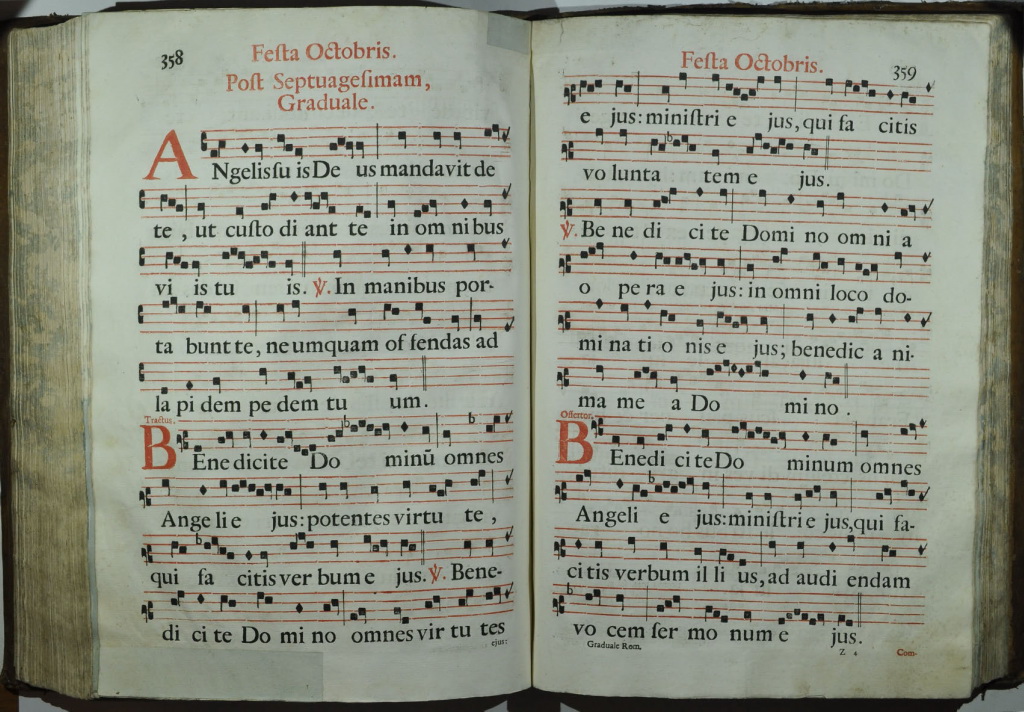 358
Festa Octobris.
Post Septuagesimam,
Graduale.
ANgelis su is De us mandavit de
te, ut custo di ant te in om ni bus
vi is tu is. ℣. In manibus por-
ta bunt te, ne umquam of fendas ad
la pi dem pe dem tu um.
Tractus.
BEne dicite Do minū omnes
Ange li e jus: potentes virtu te,
qui fa citis ver bum e jus. ℣. Bene-
di ci te Do mi no omnes vir tu tes
ejus:
Festa Octobris.
359
e jus: ministri e jus, qui fa citis
vo lunta tem e jus.
℣. Be ne di ci te Domi no om ni a
o pe ra e jus: in omni loco do-
mi na ti o nis e jus; benedic a ni-
ma me a Do mi no.
Offertor.
BEnedi ci te Do minum omnes
Angeli e jus: ministri e jus, qui fa-
ci tis verbum il li us, ad audi endam
vo cem ser mo num e jus.
Graduale Rom.
Z 4
Com-